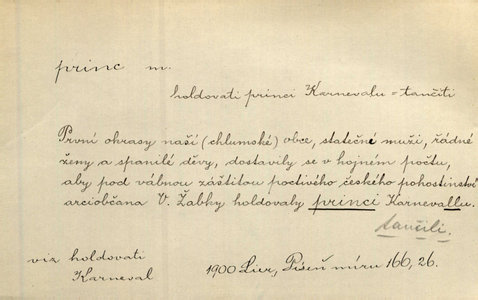 princ m.
holdovati princi Karnevalu = tančiti
První okrasy naší (chlumské) obce, statečné muži, řádné
ženy a spanilé děvy, dostavily se v hojném počtu,
aby pod vábnou záštitou poctivého českého pohostinství
arciobčana V. Žabky holdovaly princi Karnevallu.
tančili.
viz holdovati
Karneval
1900 Lier, Píseň míru 166, 26.